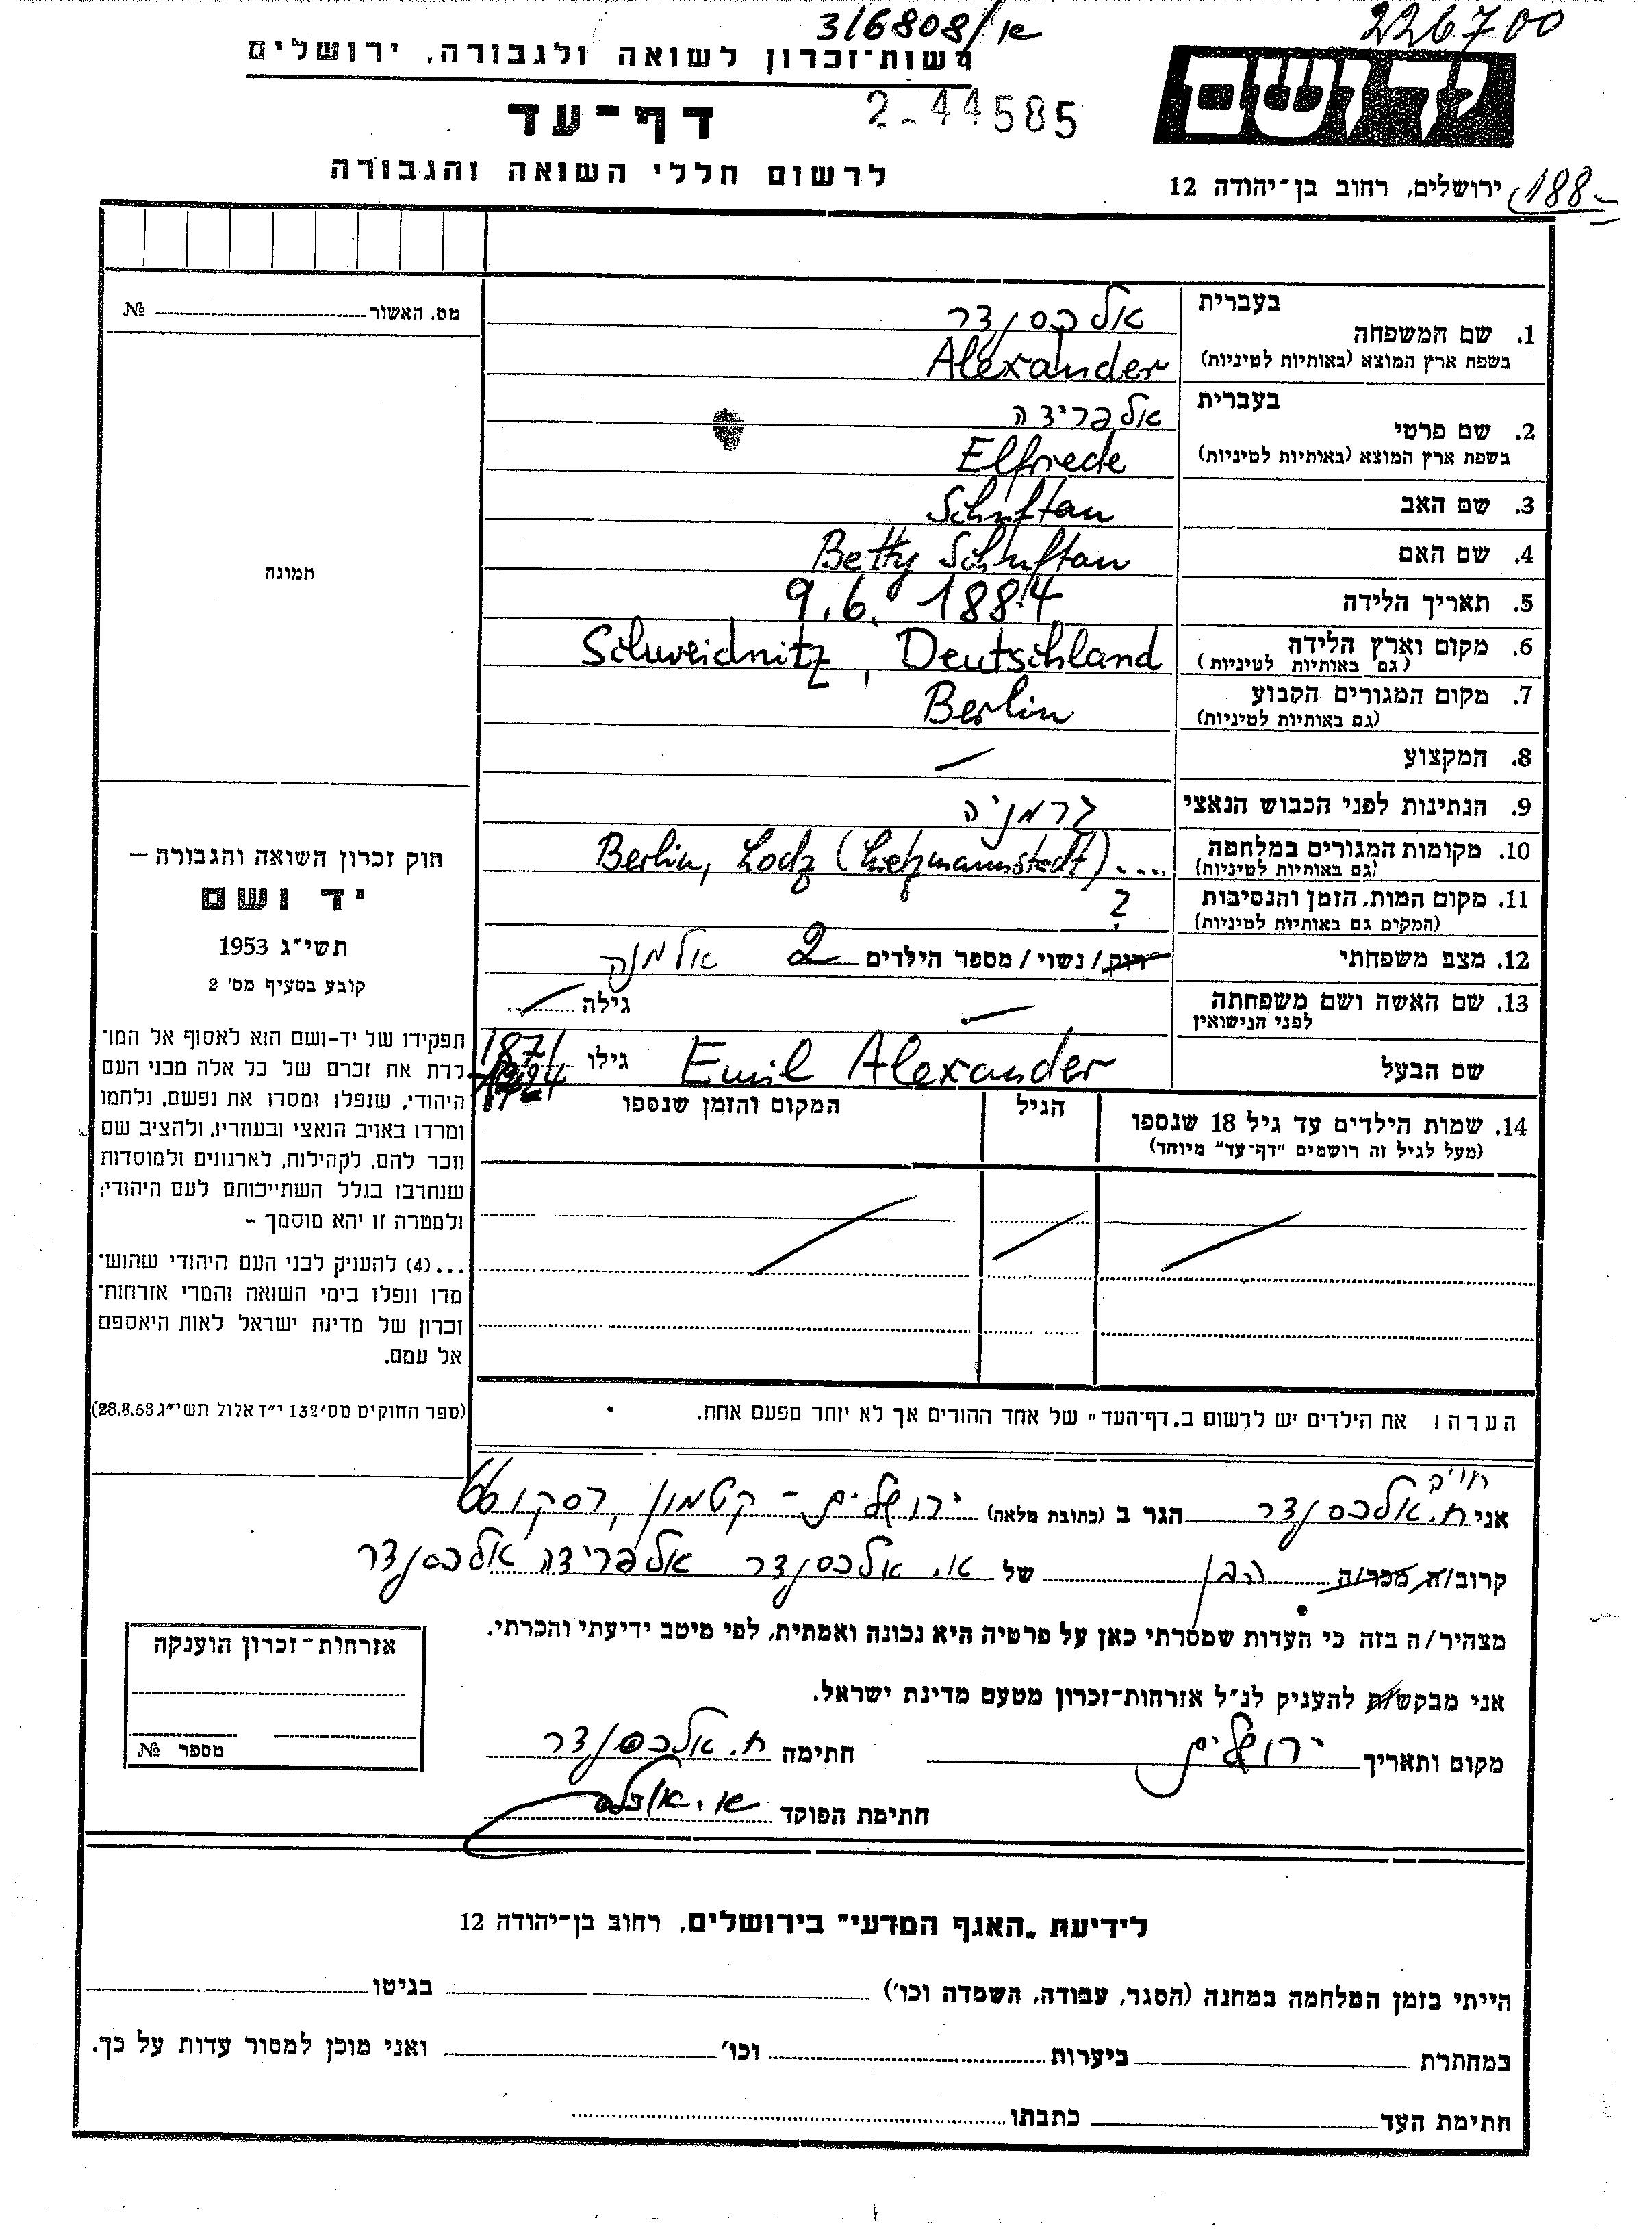 316808/א
226700
רשות־זכרון לשואה ולגבורה, ירושלים
דף־עד
2-44585
לרשום חללי השואה והגבורה
יד ושם
ירושלים, רחוב בן־יהודה 12
188-
מס. האשור № 
בעברית
אלכסנדר
1. שם המשפחה
בשפת ארץ המוצא (באותיות לטיניות)
Alexander
בעברית
אלפרידה
2. שם פרטי
בשפת ארץ המוצא (באותיות לטיניות)
Elfriede
3. שם האב
Schiftan
4. שם האם
Betty Schiftan
5. תאריך הלידה
9.6. 1884
6. מקום וארץ הלידה
(גם באותיות לטיניות)
Schweidnitz, Deutschland
7. מקום המגורים הקבוע
(גם באותיות לטיניות)
Berlin
8. המקצוע
9. הנתינות לפני הכבוש הנאצי
גרמניה
10. מקומות המגורים במלחמה
(גם באותיות לטיניות)
Berlin, Lodz (Lietzmannstadt)....
11. מקום המות, הזמן והנסיבות
(המקום גם באותיות לטיניות)
?
12. מצב משפחתי
רוק/נשוי/מספר הילדים 2
13. שם האשה ושם משפחתה
לפני הנישואין
גילה
שם הבעל
Emil Alexander
גילו
1871
14. שמות הילדים עד גיל 18 שנספו
(מעל לגיל זה רושמים "דף־עד" מיוחד)
הגיל
המקום והזמן שנספו
הערה: את הילדים יש לרשום ב„דף־העד" של אחד ההורים אך לא יותר מפעם אחת.
תמונה
חוק זכרון השואה והגבורה –
יד ושם
תשי"ג 1953
קובע בסעיף מס' 2
תפקידו של יד-ושם הוא לאסוף אל המו־
לדת את זכרם של כל אלה מבני העם
היהודי, שנפלו ומסרו את נפשם, נלחמו
ומרדו באויב הנאצי ובעוזריו, ולהציב שם
וזכר להם, לקהילות, לארגונים ולמוסדות
שנחרבו בגלל השתייכותם לעם היהודי;
ולמטרה זו יהא מוסמך –
...(4) להעניק לבני העם היהודי שהוש־
מדו ונפלו בימי השואה והמרי אזרחות־
זכרון של מדינת ישראל לאות היאספם
אל עמם.
(ספר החוקים מס' 132 י"ז אלול תשי"ג 28.8.53)
אני ח. אלכסנדר הגר ב (כתובת מלאה) ירושלים - קטמון, רסקו 66
קרוב/ה מכר/ה הבן של א. אלכסנדר אלפרידה אלכסנדר
מצהיר/ה בזה כי העדות שמסרתי כאן על פרטיה היא נכונה ואמתית, לפי מיטב ידיעתי והכרתי.
אני מבקש/ת להעניק לנ"ל אזרחות־זכרון מטעם מדינת ישראל.
מקום ותאריך ירושלים חתימה ח. אלכסנדר
חתימת הפוקד
אזרחות־זכרון הוענקה
מספר №
לידיעת „האגף המדעי" בירושלים, רחוב בן־יהודה 12
הייתי בזמן המלחמה במחנה (הסגר, עבודה, השמדה וכו') בגיטו
במחתרת ביערות וכו' ואני מוכן למסור עדות על כך.
חתימת העד כתבתו